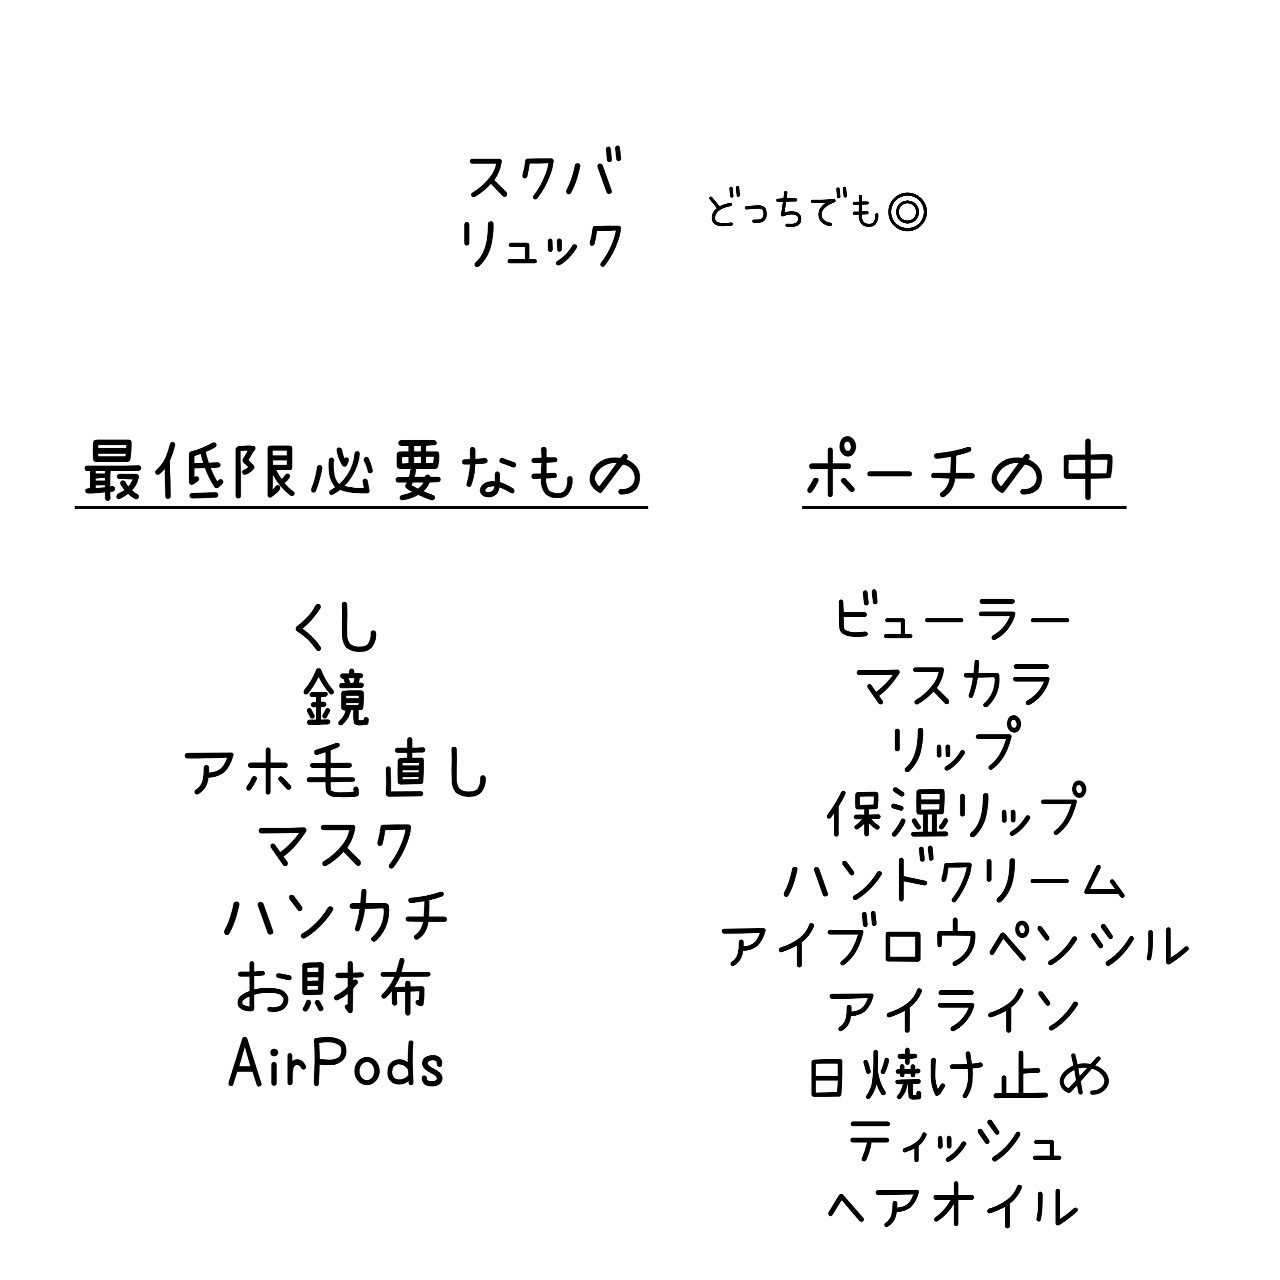 スクバ
リュック
どっちでも◎
最低限必要なもの
くし
鏡
アホ毛直し
マスク
ハンカチ
お財布
AirPods
ポーチの中
ビューラー
マスカラ
リップ
保湿リップ
ハンドクリーム
アイブロウペンシル
アイライン
日焼け止め
ティッシュ
ヘアオイル